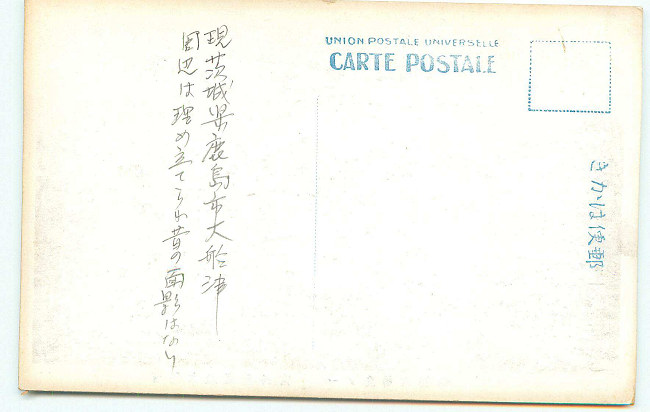 UNION POSTALE UNIVERSELLE
CARTE POSTALE
きかは便郵
現茨城県鹿島市大船津
周辺は埋め立てられ昔の面影はない